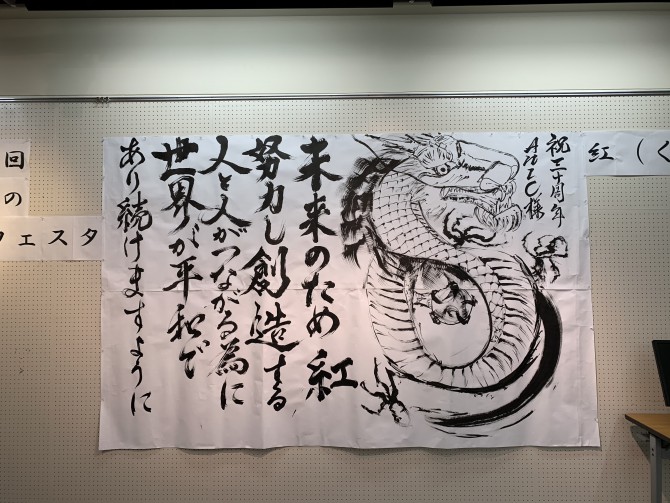 紅（く
祝三十周年
様
未来のため 紅
努力し創造する
人と人がつながる為に
世界が平和で
あり続けますように
回
の
フェスタ